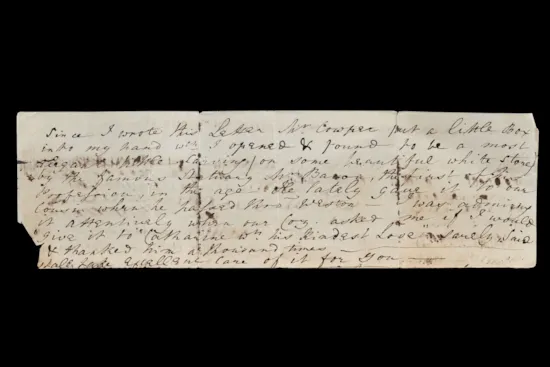 Since I wrote this Letter Mr Cowper put a little Box
into my hand wch I opened & found to be a most
elegant on some beautiful white stone
by the Famous Statuary Mr Bacon, the first of his
Profession in the age. He lately gave it to our
Cousin when he passed thro' Weston I was admiring
it attentively when our Coz: asked me if I would
give it to Catharine wth his Kindest Love, "Surely" said I
& thanked him a thousand times
shall take excellent care of it for you